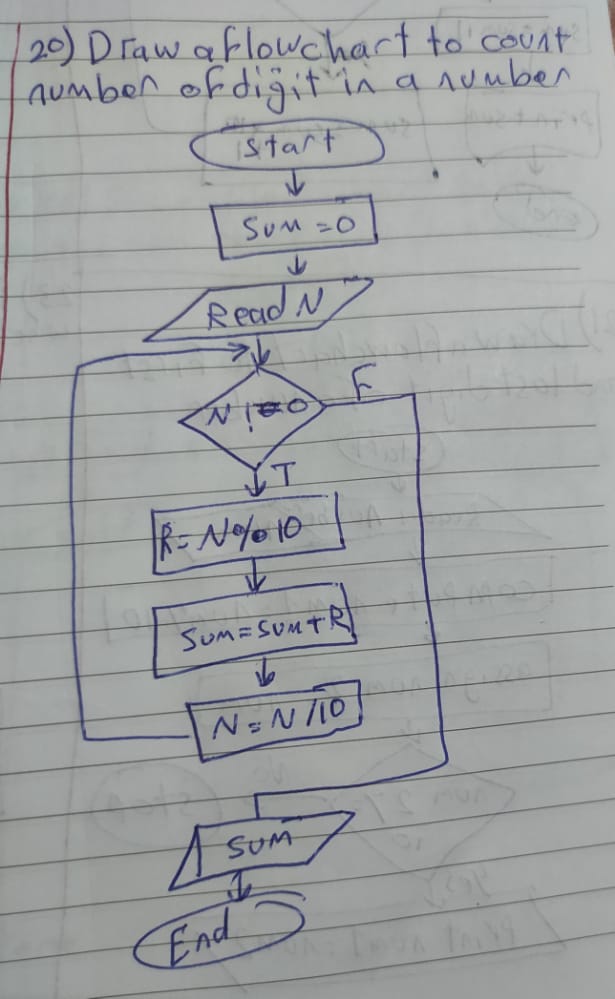 20) Draw a flowchart to count
number of digit in a number
Start
Sum = 0
Read N
N != 0
F
T
R = N % 10
Sum = Sum + R
N = N / 10
Sum
End